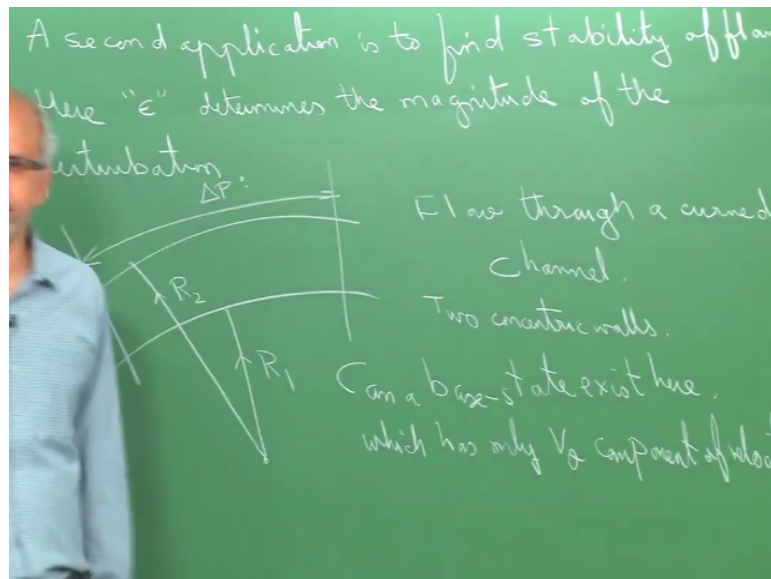 A second application is to find stability of flow
Here "ε" determines the magnitude of the
perturbation
ΔP:
Flow through a curved
channel.
Two concentric walls.
R₂
R₁
Can a base-state exist here.
which has only Vθ component of veloc